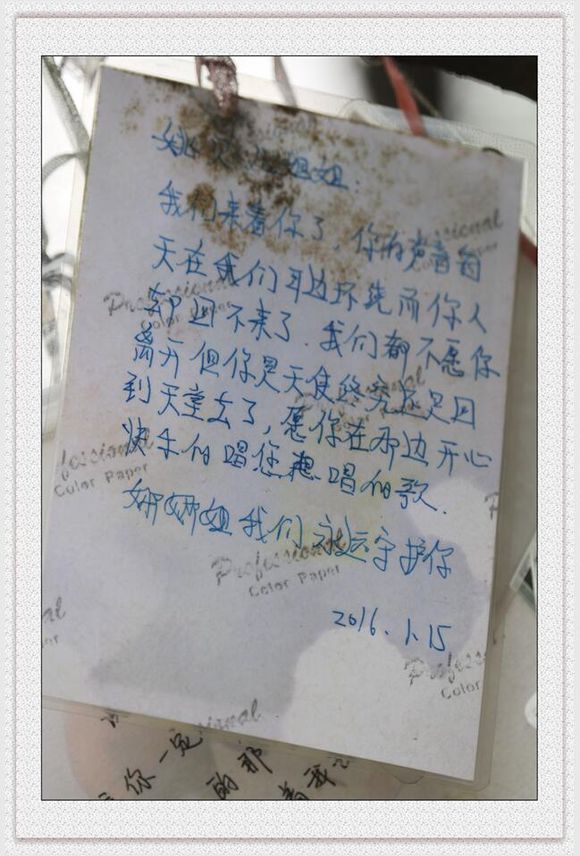 姚贝娜姐姐：
我们来看你了，你的声音每
天在我们耳边环绕而你人
却回不来了.我们都不愿你
离开但你是天使终究还是回
到天堂去了，愿你在那边开心
快乐的唱您想唱的歌.
娜娜姐我们永远守护你
2016.1.15
Professional
Color Paper
Professional
Color Paper
Professional
Color Paper
你一定
的那